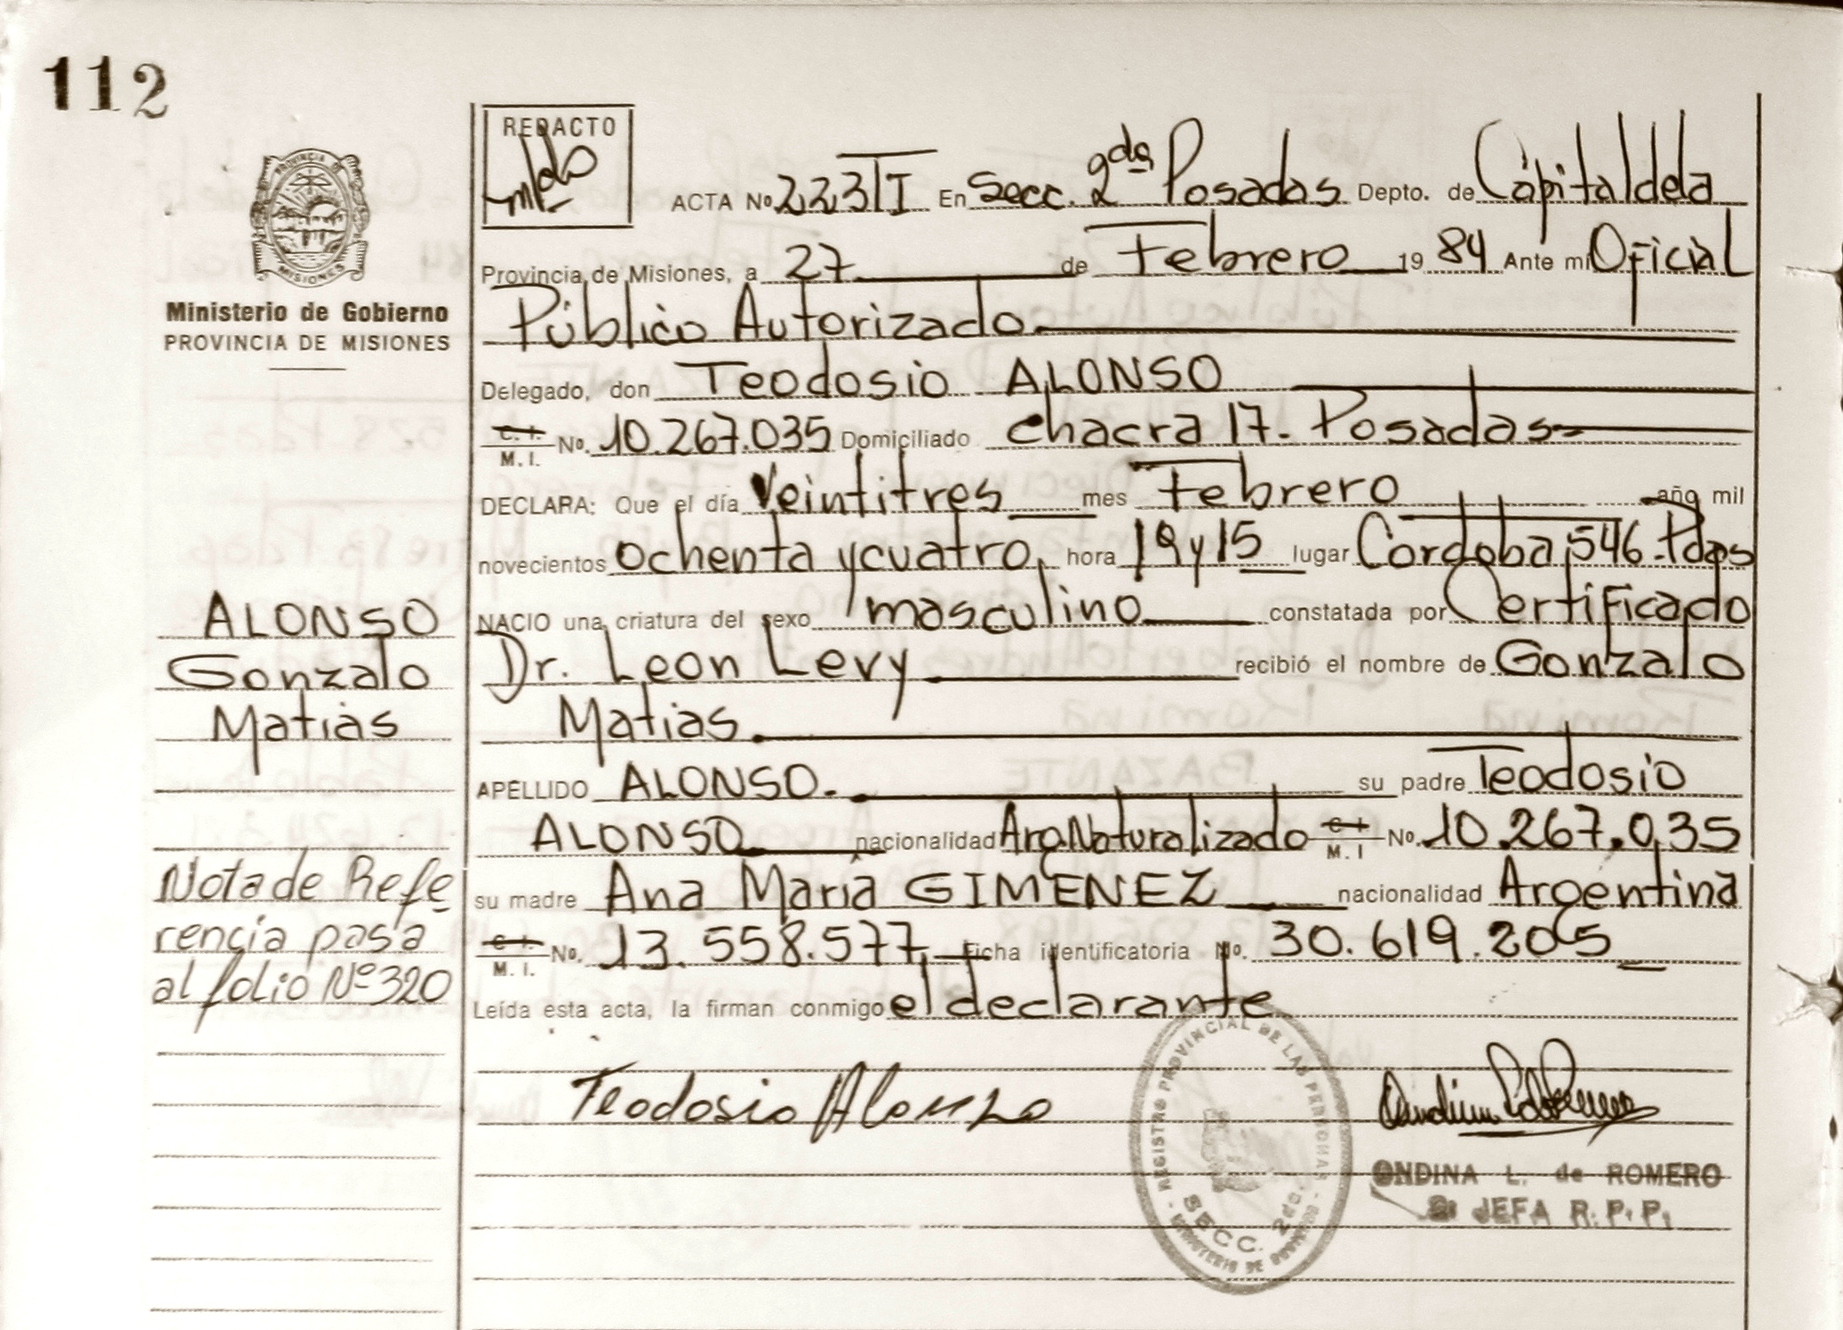 112
PROVINCIA DE
MISIONES
Ministerio de Gobierno
PROVINCIA DE MISIONES
REDACTO
ACTA Nº 223 TI En Secc. 2da Posadas Depto. de Capital de la
Provincia de Misiones, a 27 de Febrero 1984 Ante mi Oficial
Público Autorizado
Delegado, don Teodosio ALONSO
C. I. M. I. No. 10.267.035 Domiciliado chacra 17- Posadas
DECLARA: Que el día Veintitres mes Febrero año mil
novecientos ochenta y cuatro, hora 19 y 15 lugar Cordoba 546-Pdas
NACIO una criatura del sexo masculino constatada por Certificado
Dr. Leon Levy recibió el nombre de Gonzalo
Matias.
APELLIDO ALONSO. su padre Teodosio
ALONSO nacionalidad Arg. Naturalizado C I M. I No. 10.267.035
su madre Ana Maria GIMENEZ nacionalidad Argentina
C. I. M. I. No. 13.558.577 Ficha identificatoria No. 30.619.205
Leída esta acta, la firman conmigo el declarante
ALONSO
Gonzalo
Matias
Nota de Refe
rencia pasa
al folio Nº 320
Teodosio Alonso
REGISTRO PROVINCIAL DE LAS PERSONAS
SECC. 2da.
MINISTERIO DE GOBIERNO
ONDINA L. de ROMERO
JEFA R. P. P.